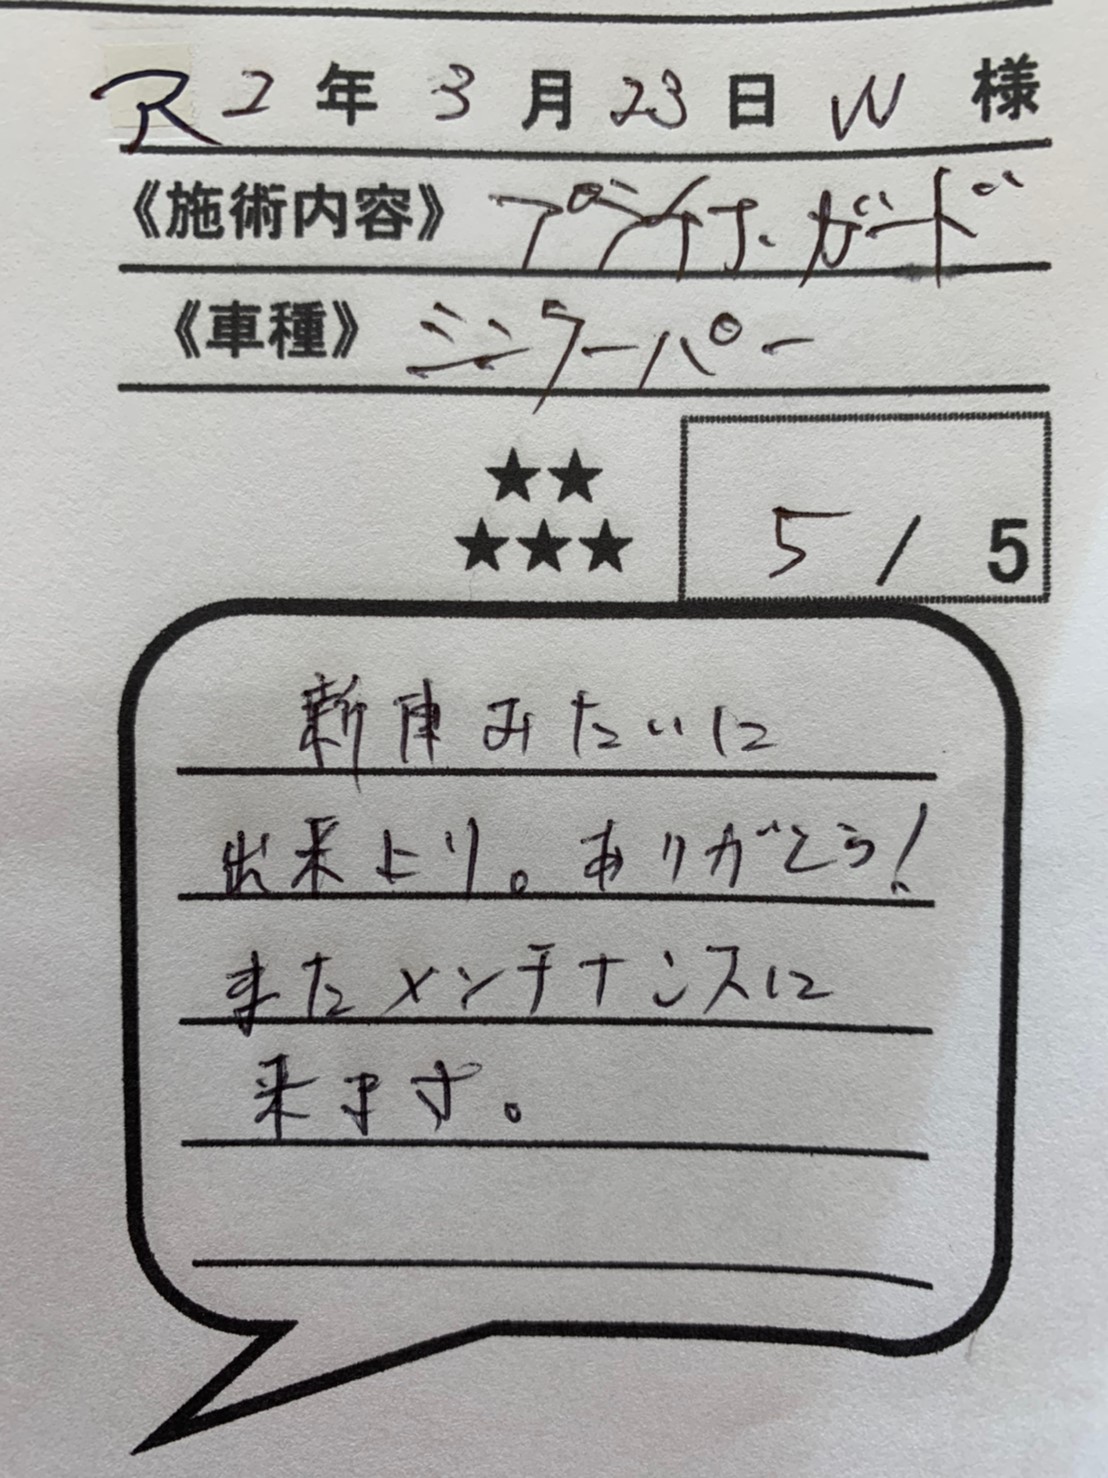 R2年3月23日 W 様
《施術内容》プラチナ.ガード
《車種》ミニクーパー
★★
★★★
5/5
新車みたいに
出来上り。ありがとう!
またメンテナンスに
来ます。